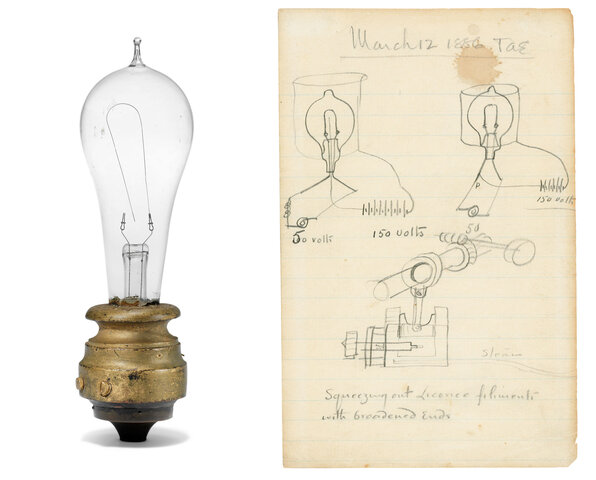 March 12 1886 TAE
50 volts
150 volts
P
50
150 volts
Squeezing out Licorice filiments
with broadened Ends